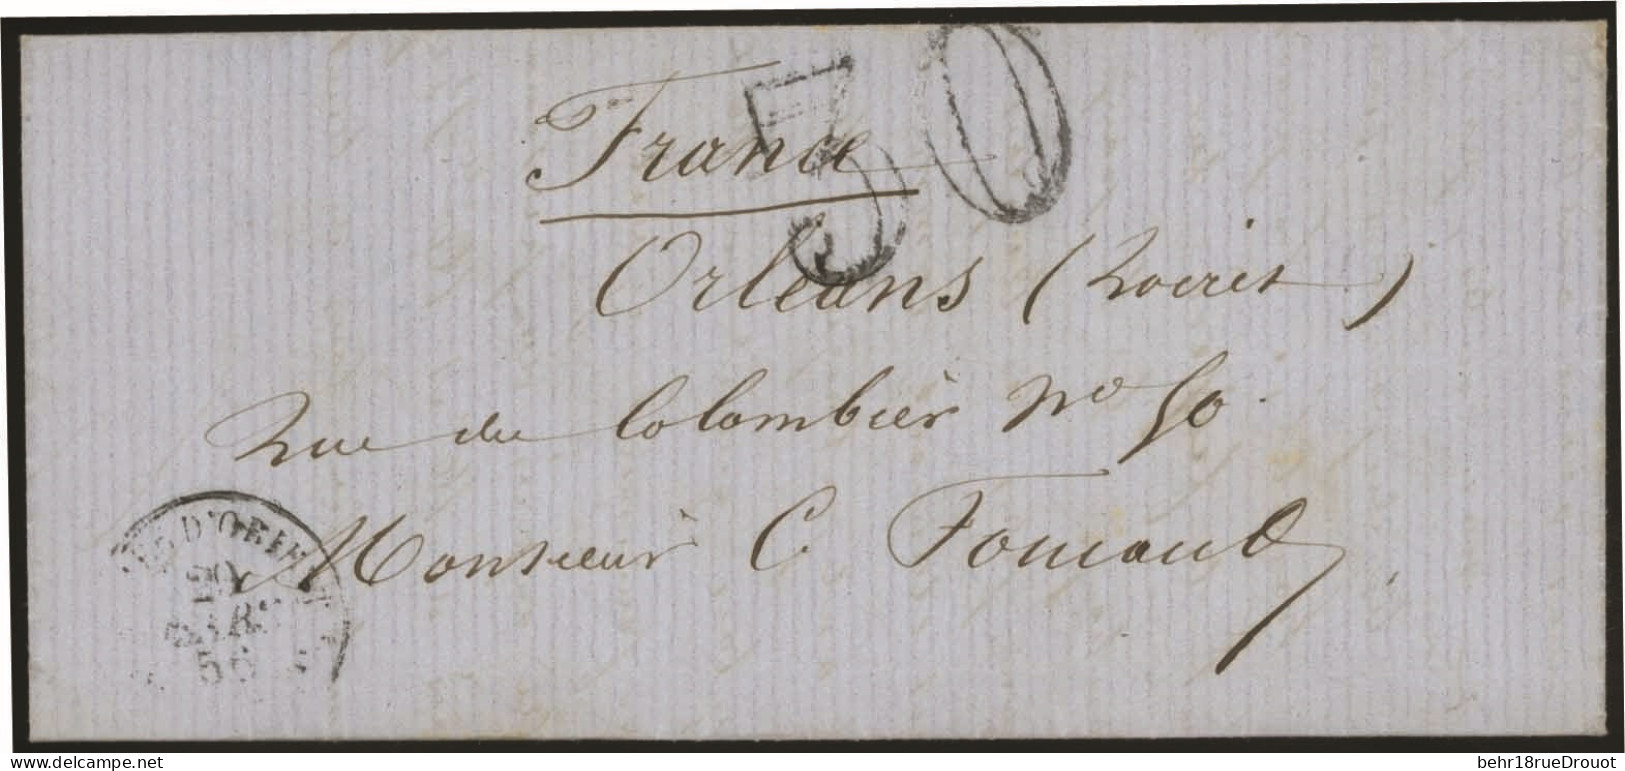 30
France
Orleans (Loiret)
Rue du Colombier No 50.
Monsieur C
D'ORIENT
20
MARS
delcampe.net
behr18rueDrouot